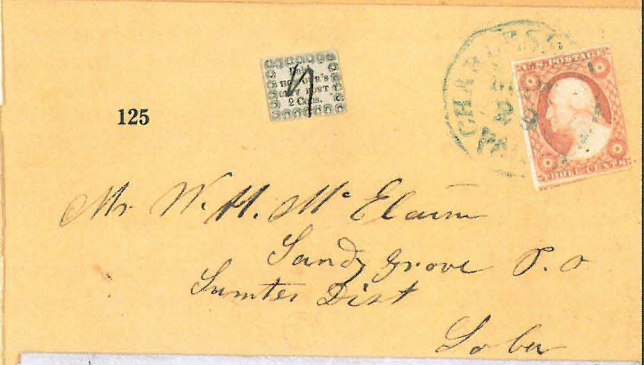 HOUR'S
CITY POST
2 Cents.
125
CHARLESTON
U.S. POSTAGE
THREE CENTS
Mr. W. H. McElaim
Sandy Grove P. o
Sumter Dist
So Ca